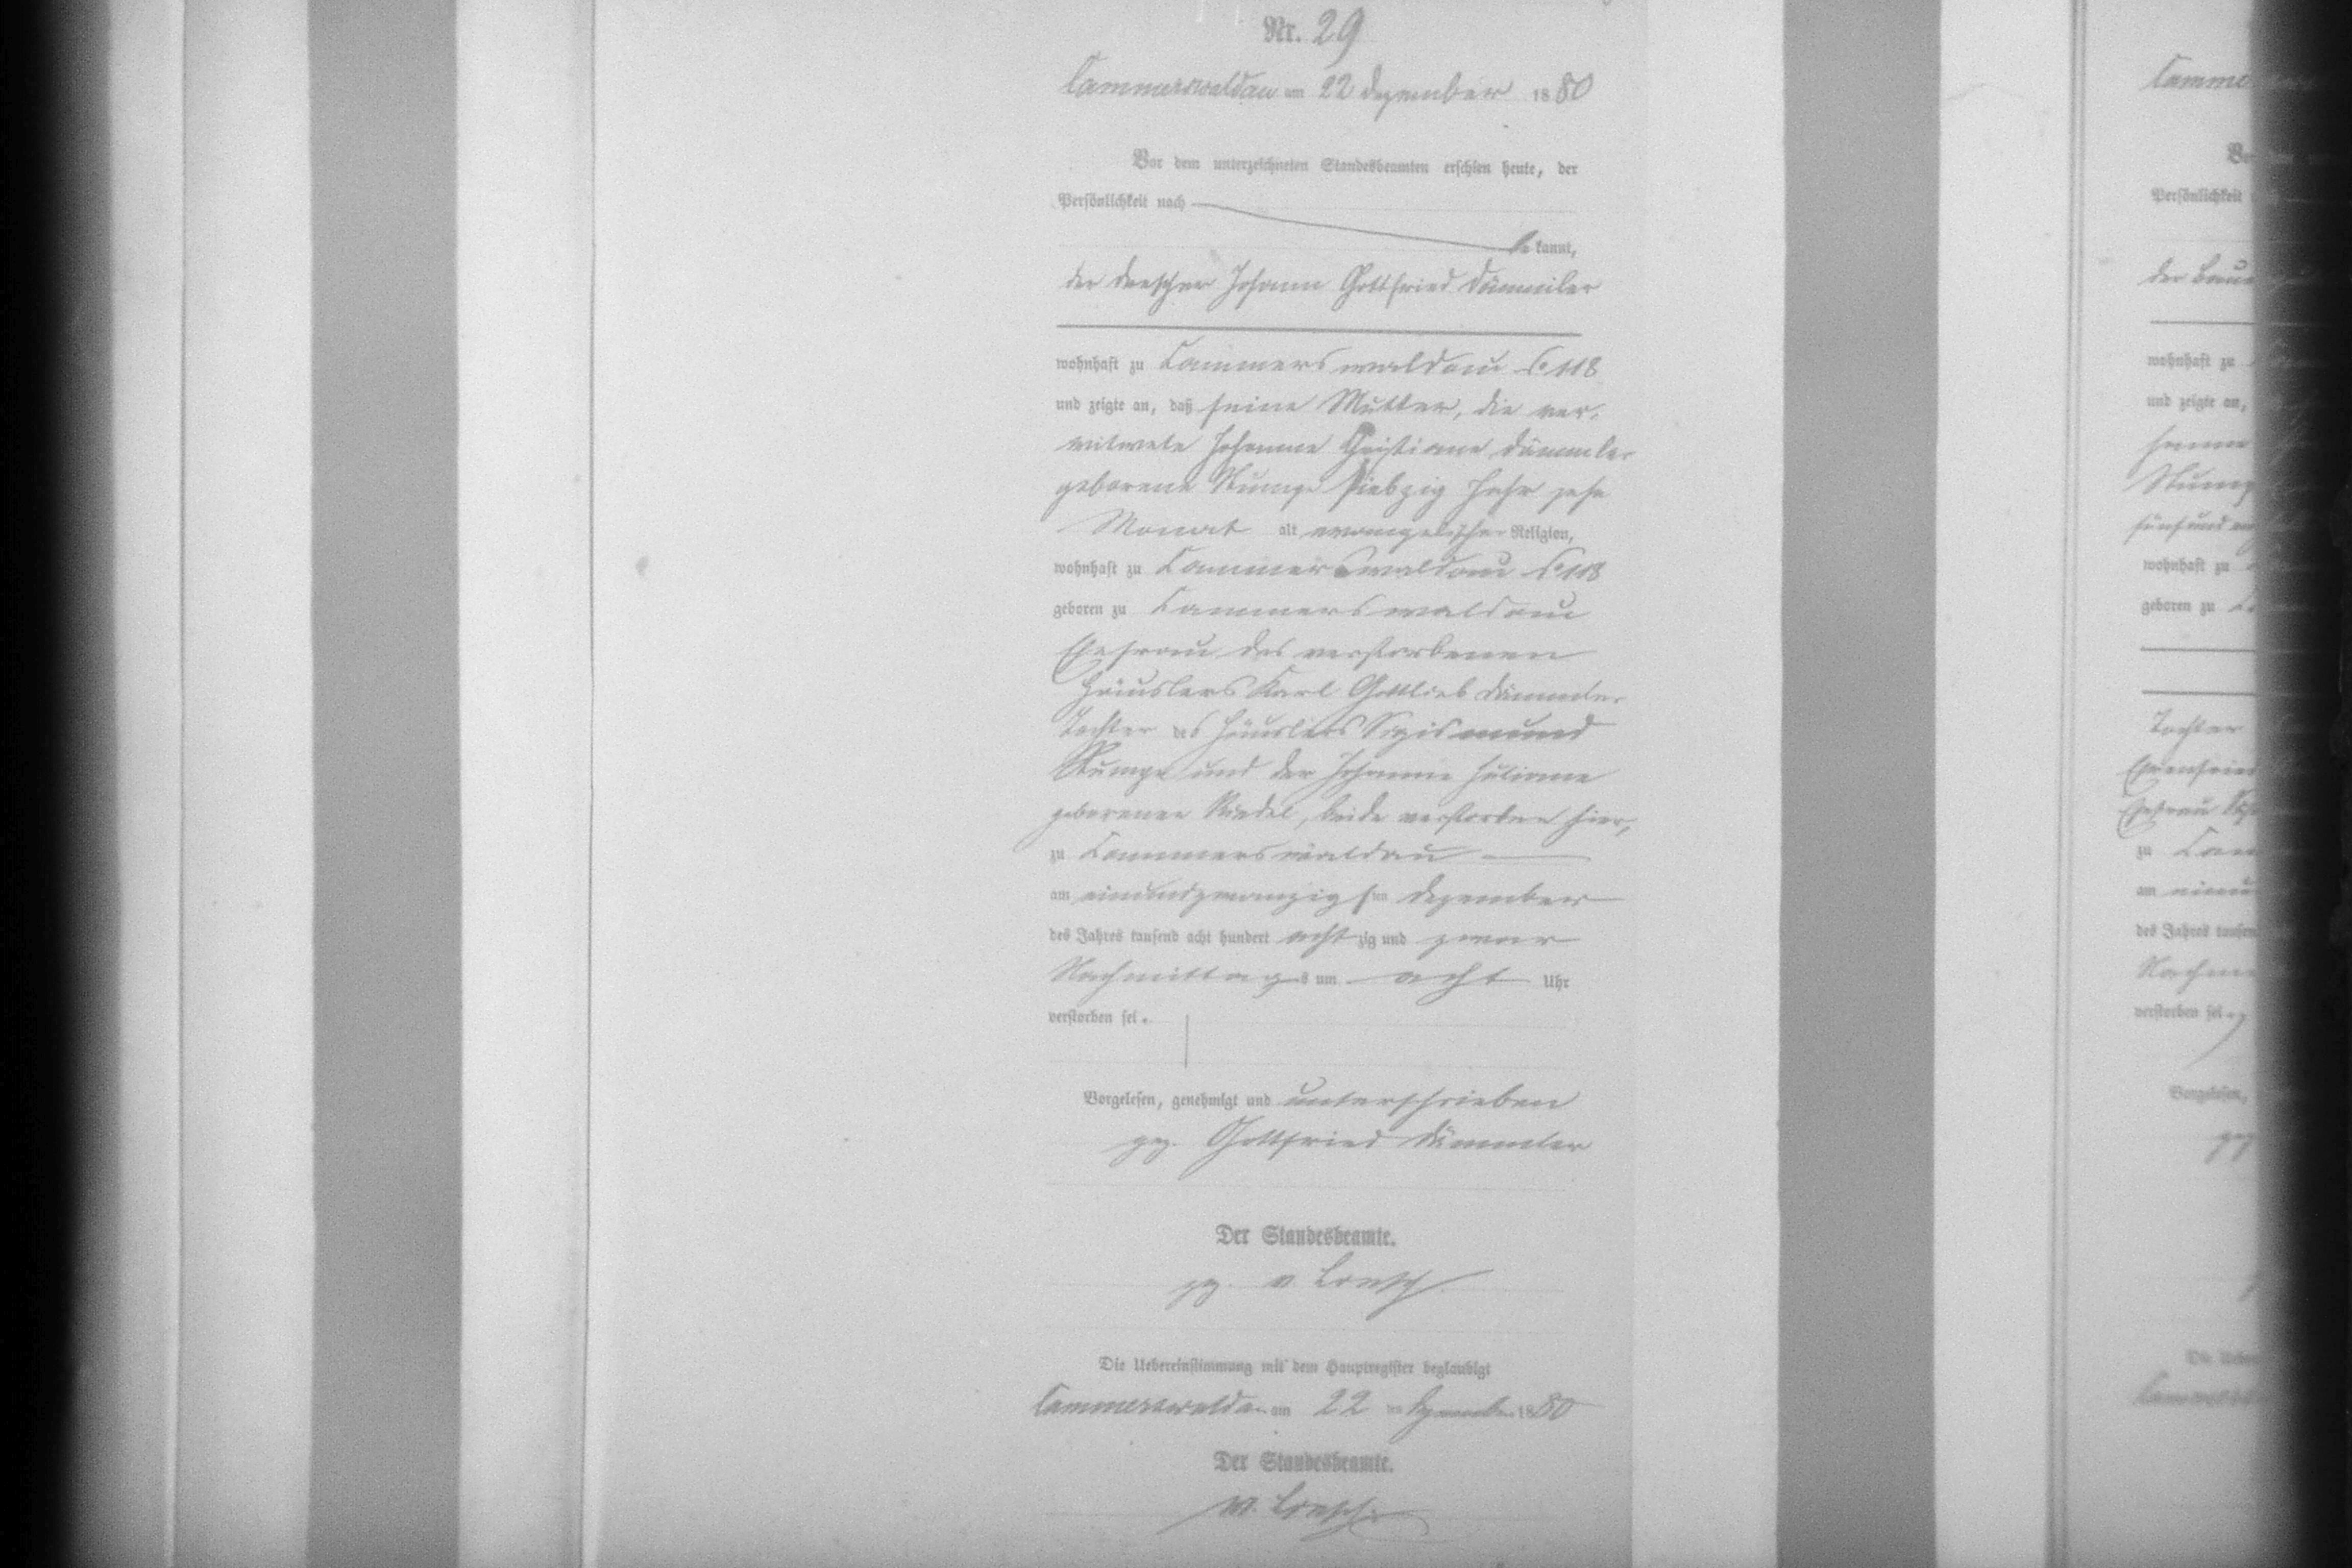 Nr. 29
Cammerswaldau am 22 Dezember 1880
Vor dem unterzeichneten Standesbeamten erschien heute, der
Persönlichkeit nach
bekannt,
der Drescher Johann Gottfried Dämmler
wohnhaft zu Cammerswaldau 118
und zeigte an, daß seine Mutter, die ver-
witwete Johanne Christiane Dämmler
geborene Rumpe siebzig Jahr zehn
Monat alt evangelischer Religion,
wohnhaft zu Cammerswaldau 118
geboren zu Cammerswaldau
Ehefrau des verstorbenen
Häuslers Karl Gottlieb Dämmler
Tochter des Häuslers Sigismund
Rumpe und der Johanne Juliane
geborenen Riedel, beide verstorben hier,
zu Cammerswaldau
am einundzwanzigsten Dezember
des Jahres tausend acht hundert achtzig und zwar
Nachmittags um acht Uhr
verstorben sei.
Vorgelesen, genehmigt und unterschrieben
gez. Gottfried Dämmler
Der Standesbeamte.
gez. v.
Die Uebereinstimmung mit dem Hauptregister beglaubigt
Cammerswaldau am 22 ten Dezember 1880
Der Standesbeamte.
Camme
Persönlichkeit
der Baue
wohnhaft zu
und zeigte an,
wohnhaft zu
geboren zu
Tochter
Ehefrau
zu Cam
am
des Jahres tausen
verstorben sei
Vorgelesen,
gez